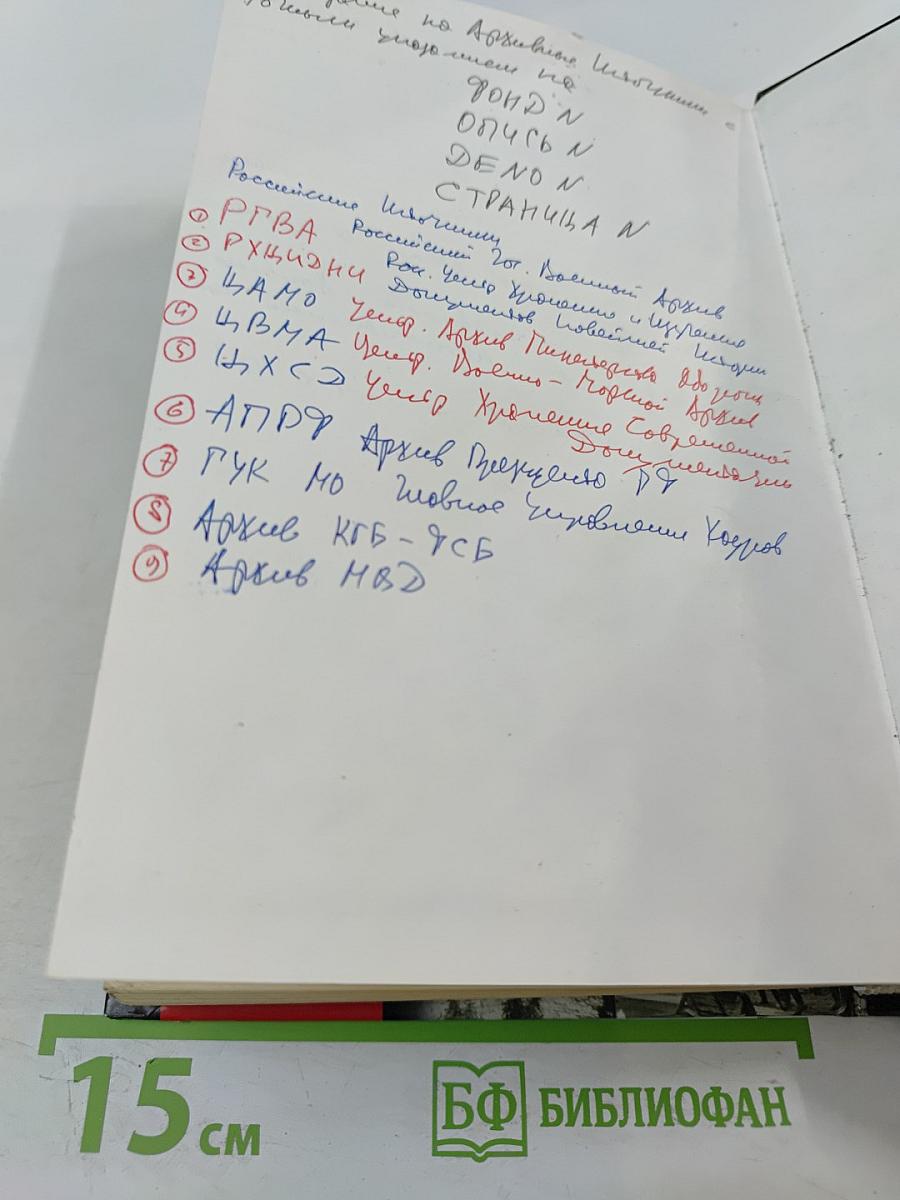 на Архивные Источники с
указанием на
ФОНД N
ОПИСЬ N
DЕЛО N
СТРАНИЦА N
Российские Источники
① РГВА Российский Гос. Военный Архив
② РХЦИДНИ Рос. Центр Хранения и Изучения
Документов Новейшей Истории
③ ЦАМО Центр. Архив Министерства Обороны
④ ЦВМА Центр. Военно-Морской Архив
⑤ ЦХСД Центр Хранения Современной
Документации
⑥ АПРФ Архив Президента РФ
⑦ ГУК МО Главное Управление Кадров
⑧ Архив КГБ-ФСБ
⑨ Архив МВД
15 см
БФ БИБЛИОФАН